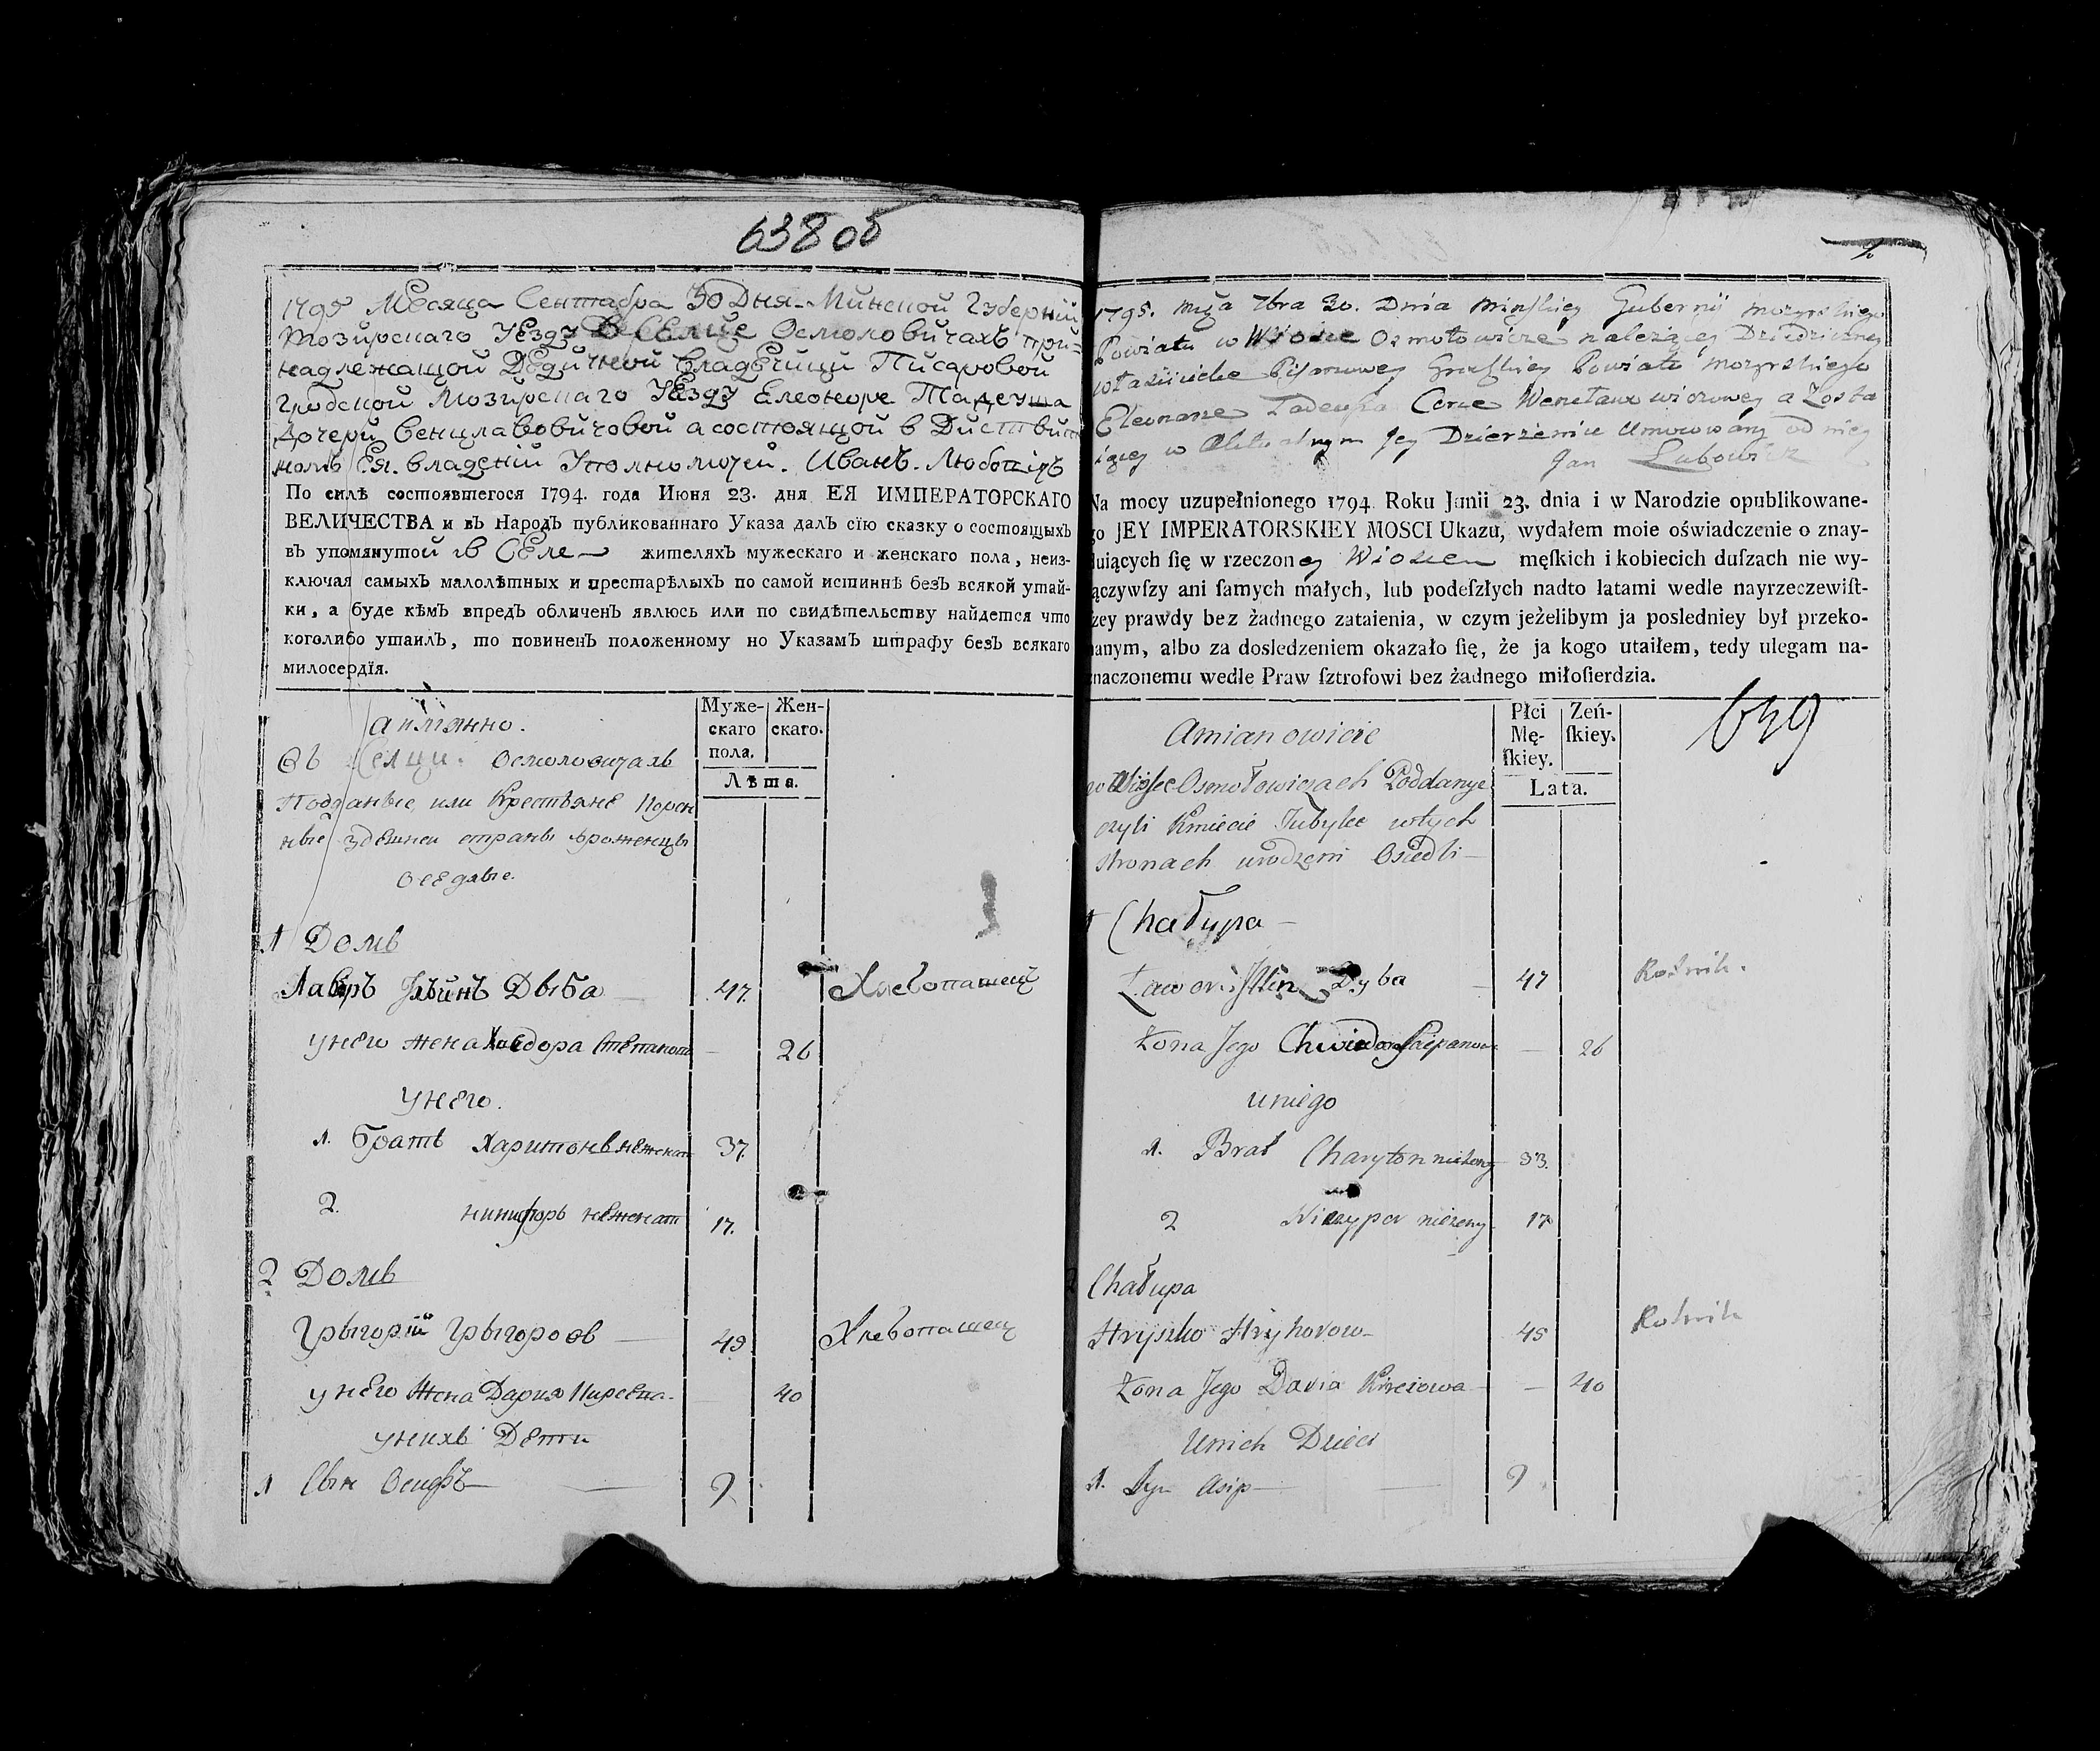 638 об
1795 Месяца Сентабра 30 Дня. Минской Губерний
Мозирскаго Уезду В СЕлце Осмоловичахъ при=
надлежащой Дедичной владечици Писаровой
Гродской Мозирскаго Уезду Елеоноре Тадеуша
Дочери Венцлавовичовой а состоящой в Дистви
номъ Ея. владений Уполномочей. Иванъ. Любовицъ
По силѣ состоявшегося 1794. года Июня 23. дня ЕЯ ИМПЕРАТОРСКАГО
ВЕЛИЧЕСТВА и въ Народъ публикованнаго Указа далъ сїю сказку о состоящыхъ
въ упомянутой въ СЕле жителяхъ мужескаго и женскаго пола, неиз-
ключая самыхъ малолѣтных и престарѣлыхъ по самой истиннѣ безъ всякой утай-
ки, а буде кѣмъ впредъ обличенъ явлюсь или по свидѣтельству найдется что
коголибо утаилъ, то повиненъ положенному но Указамъ штрафу безъ всякаго
милосердїя.
аимянно.
Муже-
скаго
пола.
Жен-
скаго.
Лѣта.
Въ Селци. Осмоловичахъ
Подданые, или Крестьяне Корен
ные здешней страны уроженцы
оседлые.
1 Домъ
Лавръ Ильинъ Дыба 47. Хлебопашец
у него жена Хведора Степанова — 26
у него.
1. братъ Харитонъ нежонат 37.
2. никифоръ нежонат 17.
2 Домъ
Грыгорий Грыгоровъ — 49 Хлебопашец
у него Жена Дария Кирсева 40
у нихъ Дети
1 Сын Осифъ — 9
1795. mca 7bra 30. Dnia Minskiey Gubernij Mozyrskiego
Powiatu w Wiosce Osmołowicze należącey Dziedziczney
Pisarzowey Grodskiey Powiatu Mozyrskiego
Eleonorze Tadeusza Corce Wencławowiczowey a Zosta
iącey w Aktualnym Jey Dzierżeniu Umocowány od niey
Jan Lubowicz
Na mocy uzupełnionego 1794. Roku Junii 23. dnia i w Narodzie opublikowane-
go JEY IMPERATORSKIEY MOSCI Ukazu, wydałem moie oświadczenie o znay-
duiących ſię w rzeczoney Wiosce męſkich i kobiecich duſzach nie wy-
łączywſzy ani ſamych małych, lub podeſzłych nadto latami wedle nayrzeczewiſt-
szey prawdy bez żadnego zataienia, w czym jeżelibym ja posledniey był przeko-
nanym, albo za dosledzeniem okazało ſię, że ja kogo utaiłem, tedy ulegam na-
znaczonemu wedle Praw ſztrofowi bez żadnego miłoſierdzia.
Amianowicie
Płci
Mę-
ſkiey.
Zeń-
ſkiey.
Lata.
639
w Wiosce Osmołowiczach Poddanye
czyli Kmiecie Tubylce w tych
stronach urodzeni Osiedli
1 Chałupa —
Ławor Illin Dyba — 47 Rolnik.
Żona Jego Chwiedora Sciepanowa — 26
u niego
1. Brat Charyton nieżeny 33.
2 Niczypor nieżeny 17
2 Chałupa
Hryszko Hryhorow — 45 Rolnik
Żona Jego Daria — 40
U nich Dzieci
1. Syn Asip — 9